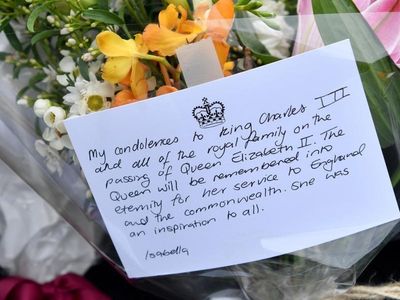 My condolences to King Charles III
and all of the royal family on the
passing of Queen Elizabeth II. The
Queen will be remembered into
eternity for her service to England
and the commonwealth. She was
an inspiration to all.
Isabella